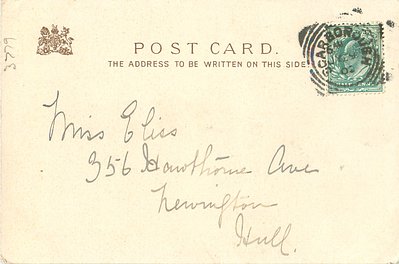 3779
POST CARD.
THE ADDRESS TO BE WRITTEN ON THIS SIDE
SCARBOROUGH
Miss Eliss
356 Hawthorne Ave
Newington
Hull.